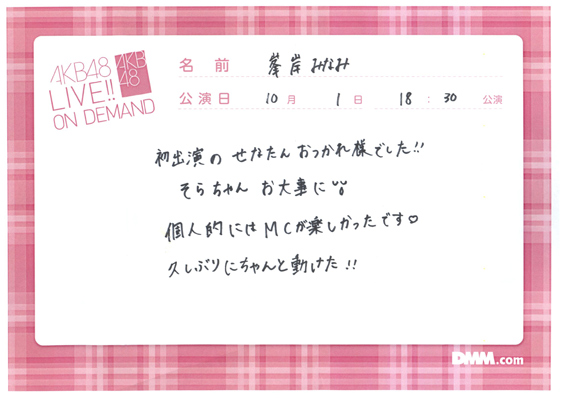 AKB48
LIVE!!
ON DEMAND
AKB
48
名前 峯岸みなみ
公演日 10月 1日 18:30 公演
初出演の せなたん おつかれ様でした!!
そらちゃん お大事に
個人的には MCが楽しかったです♡
久しぶりにちゃんと動けた!!
DMM.com